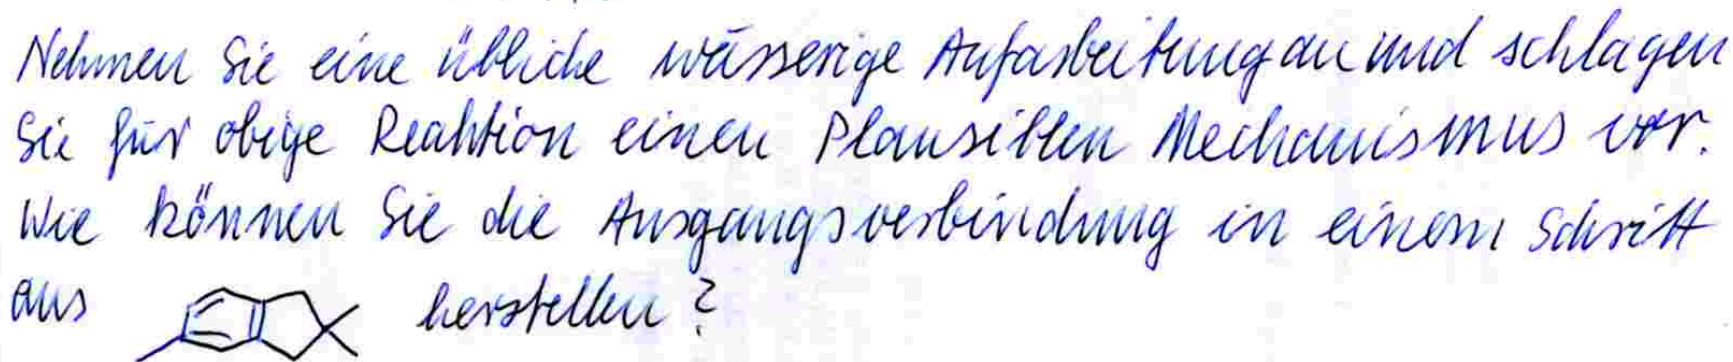 Nehmen Sie eine übliche wässerige Aufarbeitung an und schlagen
Sie für obige Reaktion einen Plausiblen Mechanismus vor.
Wie können Sie die Ausgangsverbindung in einem Schritt
aus herstellen?